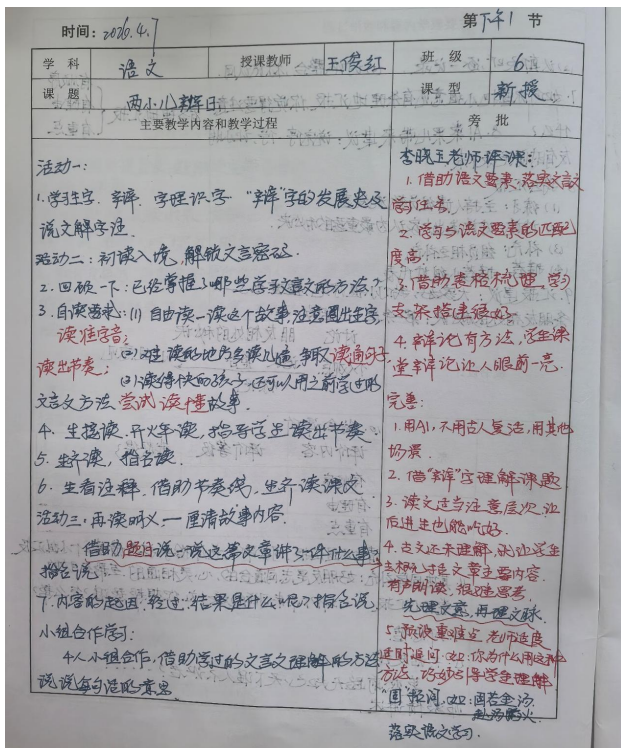 时间：2026.4.7 第下午1节
学科 语文 授课教师 王俊红 班级 6
课题 两小儿辩日 课型 新授
主要教学内容和教学过程
活动一：
1.学习生字，辩，字理识字 "辩"字的发展史及
说文解字注.
活动二：初读入境，解锁文言密码.
2.回顾一下：已经掌握了哪些学习文言文的方法？
3.自读要求：(1)自由读一读这个故事，注意圈出生字，
读准字音；
(2)难读的地方多读几遍，争取读通句子，
读出节奏；
(3)读得快的孩子，还可以用之前学过的
文言文方法尝试读懂故事.
4.生接读，开火车读，指导学生读出节奏
5.生齐读，指名读.
6.生看注释，借助节奏线，生齐读课文
活动三：再读明义——厘清故事内容.
借助题目说一说这篇文章讲了一件什么事？
指名说
7.内容的起因，经过，结果是什么呢？指名说
小组合作学习：
4人小组合作，借助学过的文言文理解的方法
说说每句话的意思
旁批
李晓玉老师评课：
1.借助语文要素，落实文言文
学习任务.
2.学习与语文要素的匹配
度高
3.借助表格梳理，学习
支架搭建很好
4.辩论有方法，学生课
堂辩论让人眼前一亮.
完善：
1.用AI，不用古人复活，用其他
场景.
2.借"辩"字理解课题
3.读文适当注意层次，让
后进生也能听好.
4.古文还未理解，就让学生
主要内容.
有声朗读，很难思考.
先理文意，再理文脉.
5.预设重难点，老师适度
适时追问.如：你为什么用这种
方法，巧妙引导学生理解
如：固若金汤.
赴汤蹈火
落实语文学习.